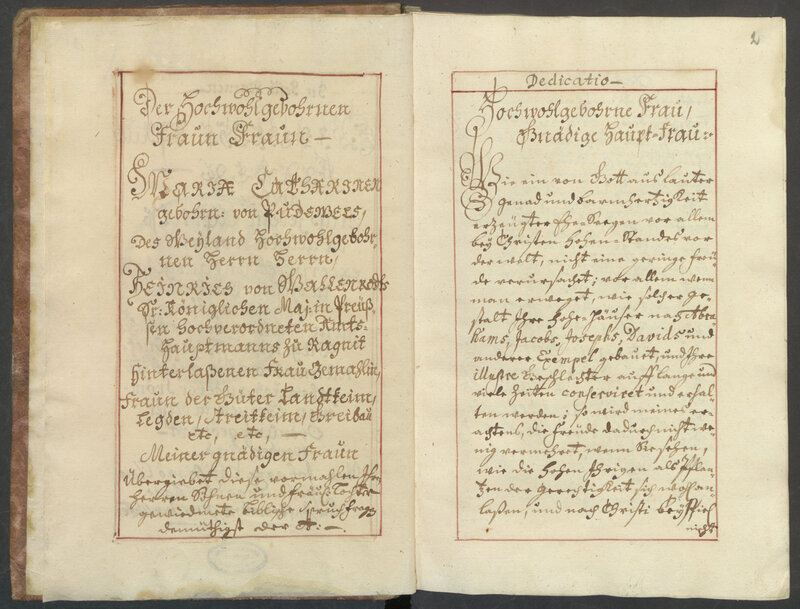 Der Hochwohlgebohrnen
Fraun Fraun —
Maria Catharinen
gebohrn: von Pudewels,
Des Weyland Hochwohlgebohr-
nen Herrn Herrn,
Heinries von Wallenrodts
Sr: Königlichen Maj: in Preuß-
sen Hochverordneten Ambts-
Hauptmanns zu Ragnit
Hinterlaßenen Frau Gemahlin,
Fraun der Güter Landtkeim,
Legden, Streitkeim, Greibau
etc, etc, —
Meiner gnädigen Fraun
Übergiebet diese vormahlen Ihr
Herren Söhnen und Fräul: Tochter
gewiedmete biblische Spruch Frag
demüthigst der A: —
2
Dedicatio —
Hochwohlgebohrne Frau,
Gnädige Haupt-Frau:
Wie ein von Gott aus lauter
Genad und barmhertzigkeit
erzeugter Ehe-Seegen vor allem
bey Christen hohen Standes vor
der welt, nicht eine geringe freu-
de verursachet; vor allem wenn
man erweget, wie solcher ge-
stalt Ihre hohe Häuser nach Abra-
hams, Jacobs, Josephs, Davids und
anderer Exempel gebauet, und Ihre
illustre Geschlechter auff lange und
viele Zeiten conserviret und erhal-
ten werden; so wird meines er-
achtens, die Freude dadurch nicht we-
nig vermehret, wenn Sie sehen,
wie die hohen Ihrigen als Pflan-
tzen der Gerechtigkeit sich wohl an-
laßen, und nach Christi beyspiel
nicht